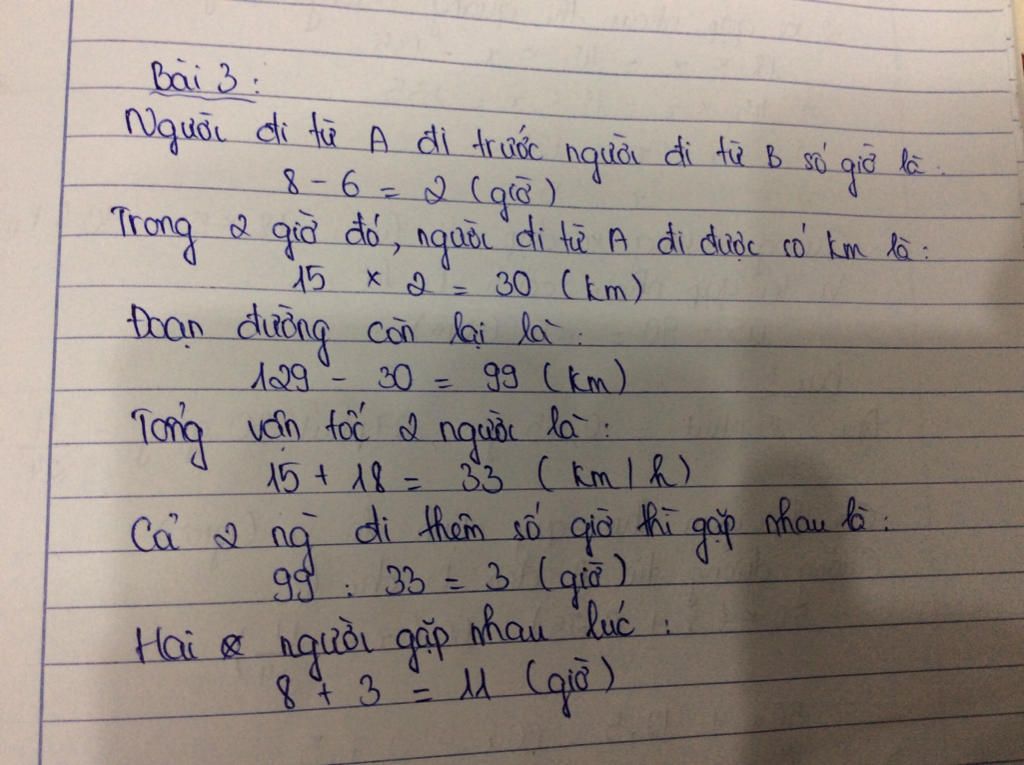 Bài 3 :
Người đi từ A đi trước người đi từ B số giờ là.
8 - 6 = 2 (giờ)
Trong 2 giờ đó, người đi từ A đi được số km là :
15 x 2 = 30 (km)
Đoạn đường còn lại là :
129 - 30 = 99 (km)
Tổng vận tốc 2 người là :
15 + 18 = 33 (km/h)
Cả 2 ng đi thêm số giờ thì gặp nhau là :
99 : 33 = 3 (giờ)
Hai người gặp nhau lúc :
8 + 3 = 11 (giờ)